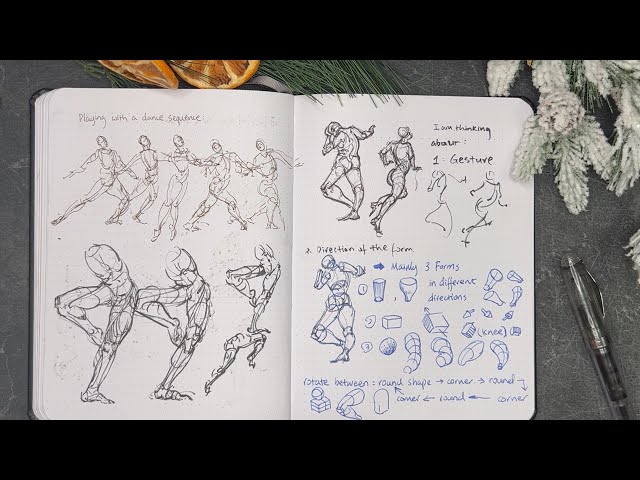 Playing with a dance sequence:
I am thinking
about:
1: Gesture
2. Direction of the form
→ Mainly 3 Forms
in different
directions
1
2
(knee)
3
rotate between: round shape → corner → round →
corner ← round ← corner